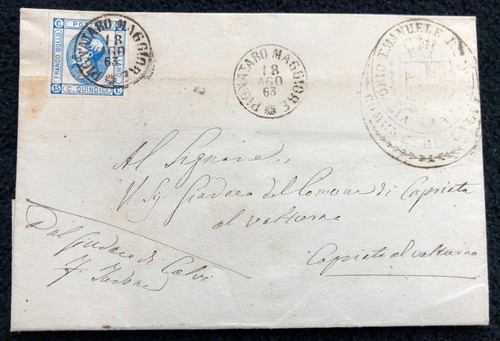 FRANCO BOLLO
POSTALE
C. QUINDICI
PIGNATARO MAGGIORE
18
AGO
63
PIGNATARO MAGGIORE
18
AGO
63
VITTORIO EMANUELE
Al Signore
Il Sig Sindaco del Comune di Capriata
al volturno
Capriata al volturno
Dal Sindaco di Calvi